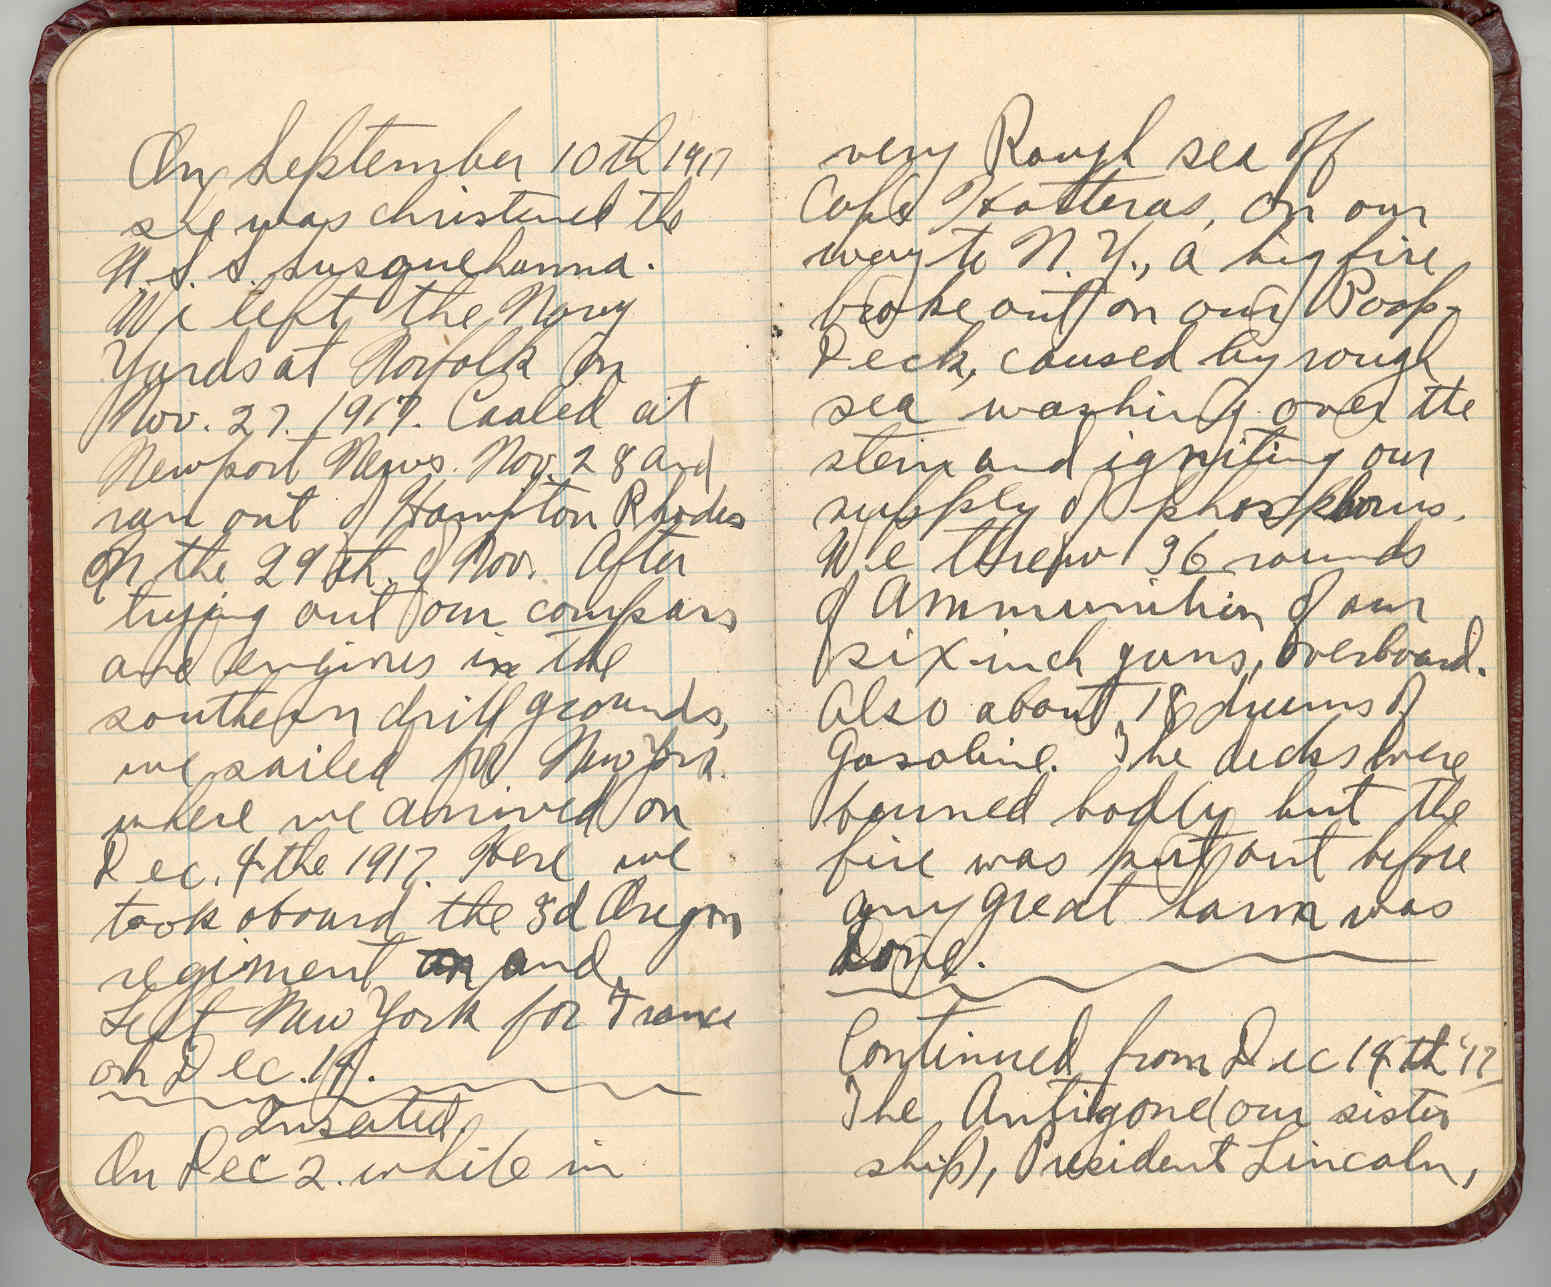 On September 10th 1917
she was christened the
U.S.S. Susquehanna.
We left the Navy
Yards at Norfolk on
Nov. 27. 1917. Coaled at
Newport News. Nov. 28 and
ran out of Hampton Rhodes
on the 29th. of Nov. After
trying out our compass
and engines in the
southern drill grounds,
we sailed for New York.
where we arrived on
Dec. 4the 1917. Here we
took aboard the 3d Oregon
regiment and
Left New York for France
on Dec. 14.
Inserted
On Dec 2. while in
very Rough sea off
Cape Hatteras, on our
way to N.Y., a big fire
broke out on our Poop-
Deck, caused by rough
sea washing over the
stern and igniting our
supply of phosphorus.
We threw 36 rounds
of Ammunition of our
six-inch guns, overboard.
Also about 18 drums of
Gasoline. The decks were
burned badly but the
fire was put out before
any great harm was
Done.
Continued from Dec 14th '17
The Antigone (our sister
ship), President Lincoln,